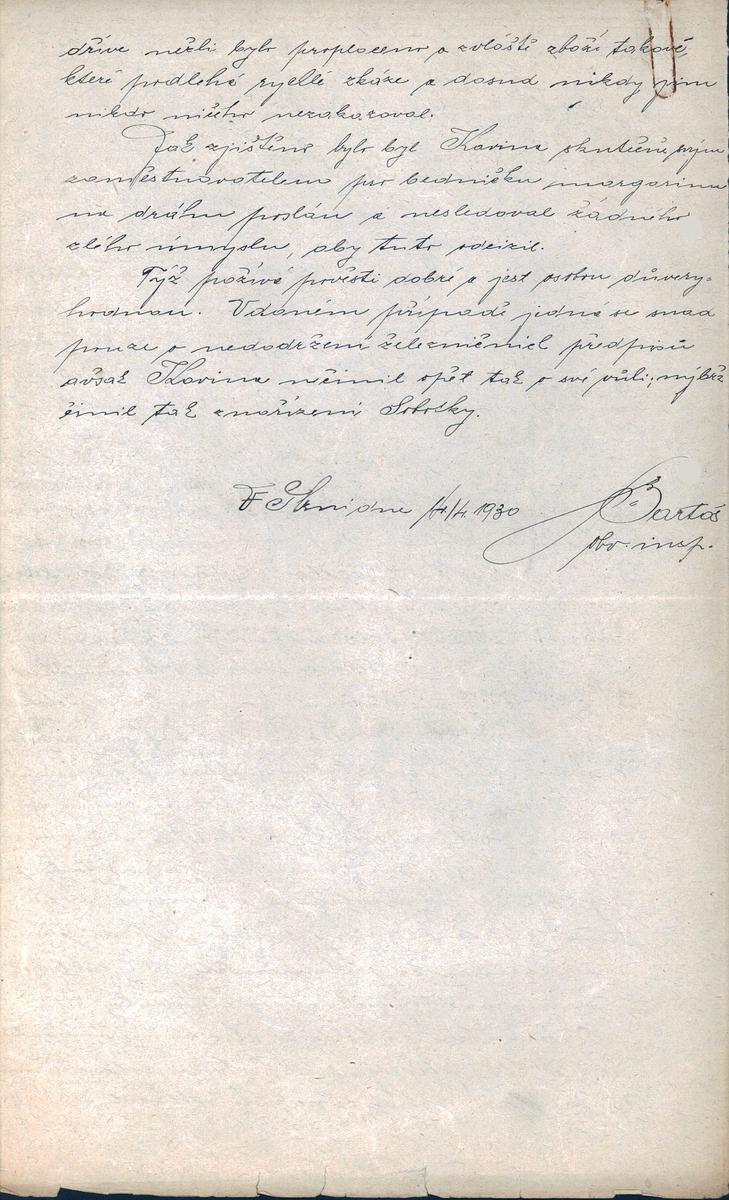 dříve nežli bylo proplaceno a zvláště zboží takové,
které podlehá rychlé zkáze a dosud nikdy jim
nikdo ničeho nezakazoval.
Jak zjištěno bylo byl Kavina skutečně svým
zaměstnavatelem pro bedničku margarinu
na dráhu poslán a nesledoval žádného
zlého úmyslu, aby tuto odcizil.
Týž požívá pověsti dobré a jest osobou důvěry-
hodnou. V daném případě jedná se snad
pouze o nedodržení železničních předpisů
avšak Kavina nečinil opět tak o své vůli, nýbrž
činil tak z nařízení Sobotky.
V 1930 Bartoš
obv. insp.